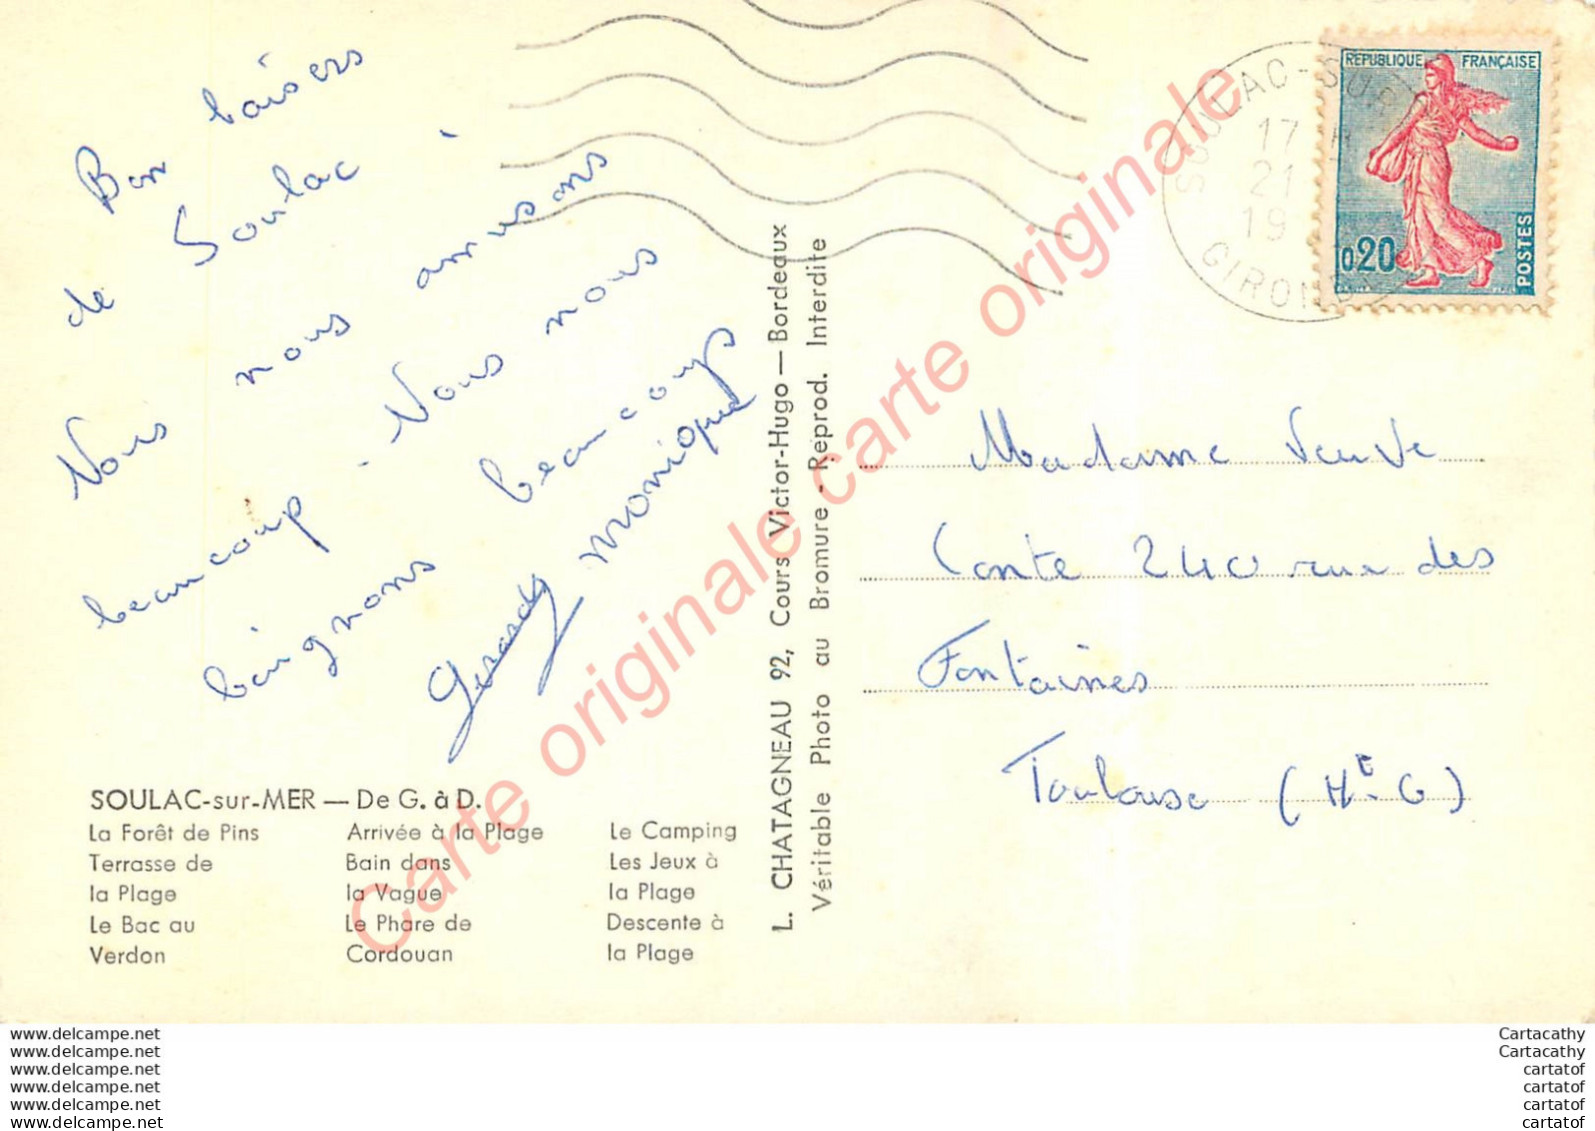 Bon baisers
de Soulac
Nous nous amusons
beaucoup. Nous nous
baignons beaucoups
Gérard Monique
SOULAC-sur-MER — De G. à D.
La Forêt de Pins
Terrasse de
la Plage
Le Bac au
Verdon
Arrivée à la Plage
Bain dans
la Vague
Le Phare de
Cordouan
Le Camping
Les Jeux à
la Plage
Descente à
la Plage
L. CHATAGNEAU 92, Cours Victor-Hugo — Bordeaux
Véritable Photo au Bromure - Reprod. Interdite
SOULAC-SUR
17
21
19
GIRONDE
REPUBLIQUE FRANÇAISE
0,20
POSTES
Madame Veuve
Conte 240 rue des
Fontaines
Toulouse (Hte-G)
Carte originale carte originale
www.delcampe.net
www.delcampe.net
www.delcampe.net
www.delcampe.net
www.delcampe.net
www.delcampe.net
Cartacathy
Cartacathy
cartatof
cartatof
cartatof
cartatof